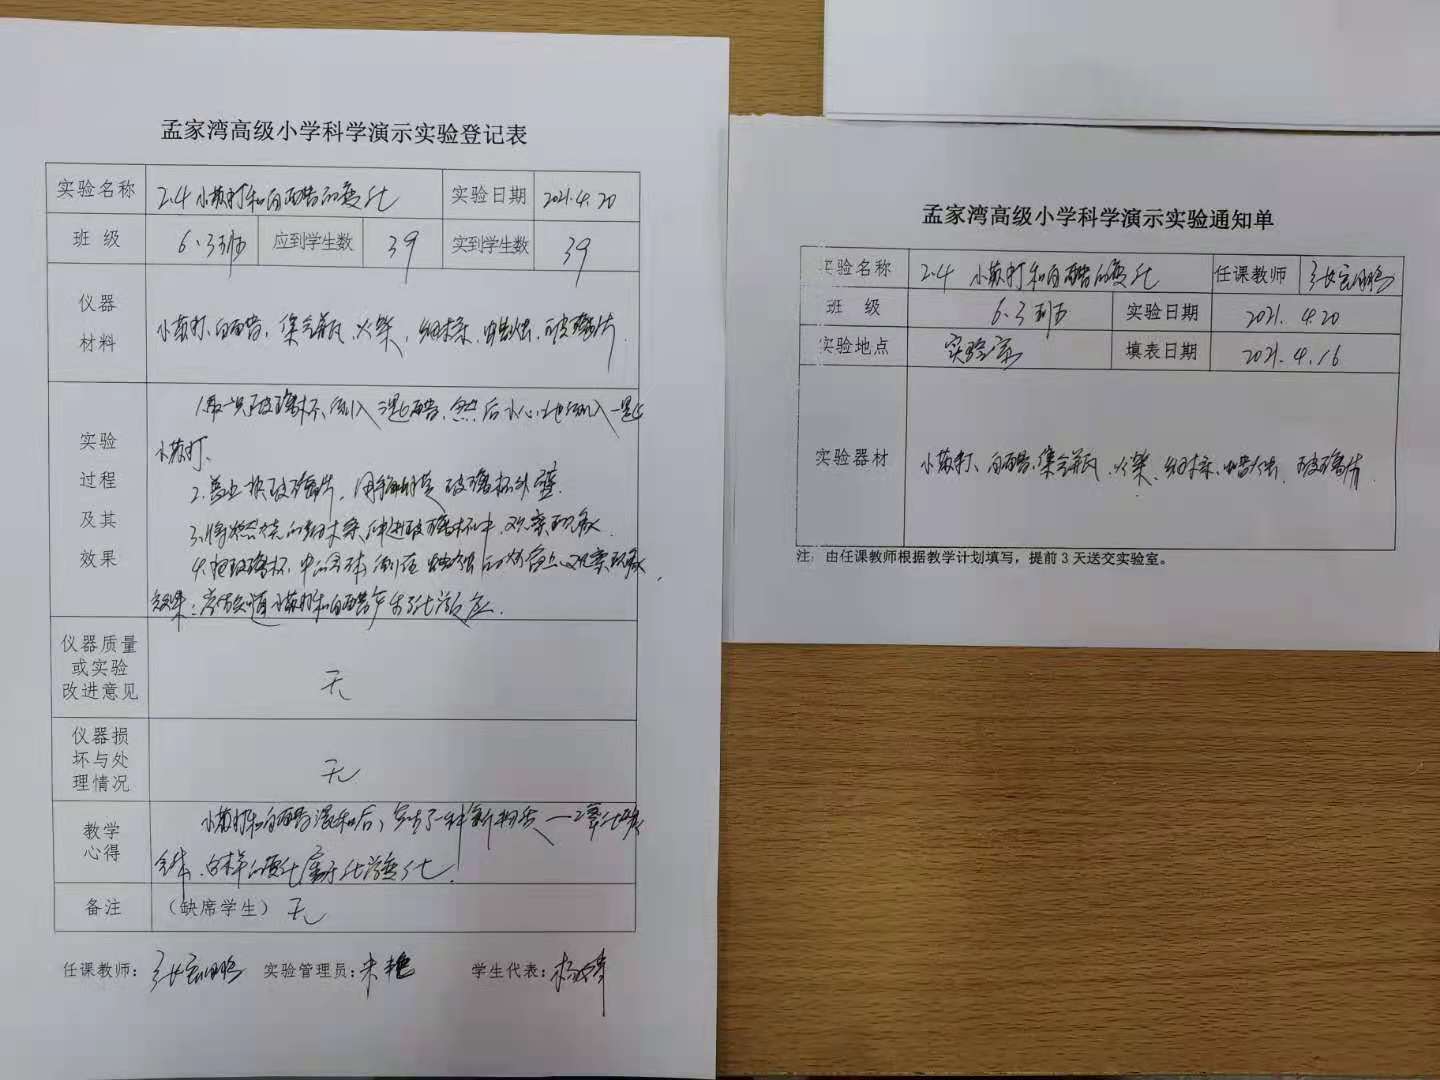 孟家湾高级小学科学演示实验登记表
实验名称 2.4 小苏打和白醋的变化 实验日期 2021.4.20
班 级 6.3班 应到学生数 39 实到学生数 39
仪器
材料
小苏打、白醋、集气瓶、火柴、细木条、蜡烛、玻璃片.
实验
过程
及其
效果
1.取一只玻璃杯、倒入 醋、然后小心地倒入一些
小苏打、
2.盖上玻璃片,用手触摸玻璃杯外壁.
3.将燃烧的细木条伸进玻璃杯中,观察现象.
4.把玻璃杯中的气体倒在蜡烛的火焰上,观察现象,
效果: 小苏打和白醋产生了化学反应.
仪器质量
或实验
改进意见
无
仪器损
坏与处
理情况
无
教学
心得
小苏打和白醋混和后,产生了一种新物质—二氧化碳
气体、这样的变化属于化学变化.
备注 (缺席学生) 无
任课教师: 实验管理员:朱艳 学生代表:
孟家湾高级小学科学演示实验通知单
实验名称 2.4 小苏打和白醋的变化 任课教师
班 级 6.3班 实验日期 2021. 4.20
实验地点 实验室 填表日期 2021.4.16
实验器材 小苏打、白醋、集气瓶、火柴、细木条、蜡烛、玻璃片.
注:由任课教师根据教学计划填写,提前3天送交实验室。